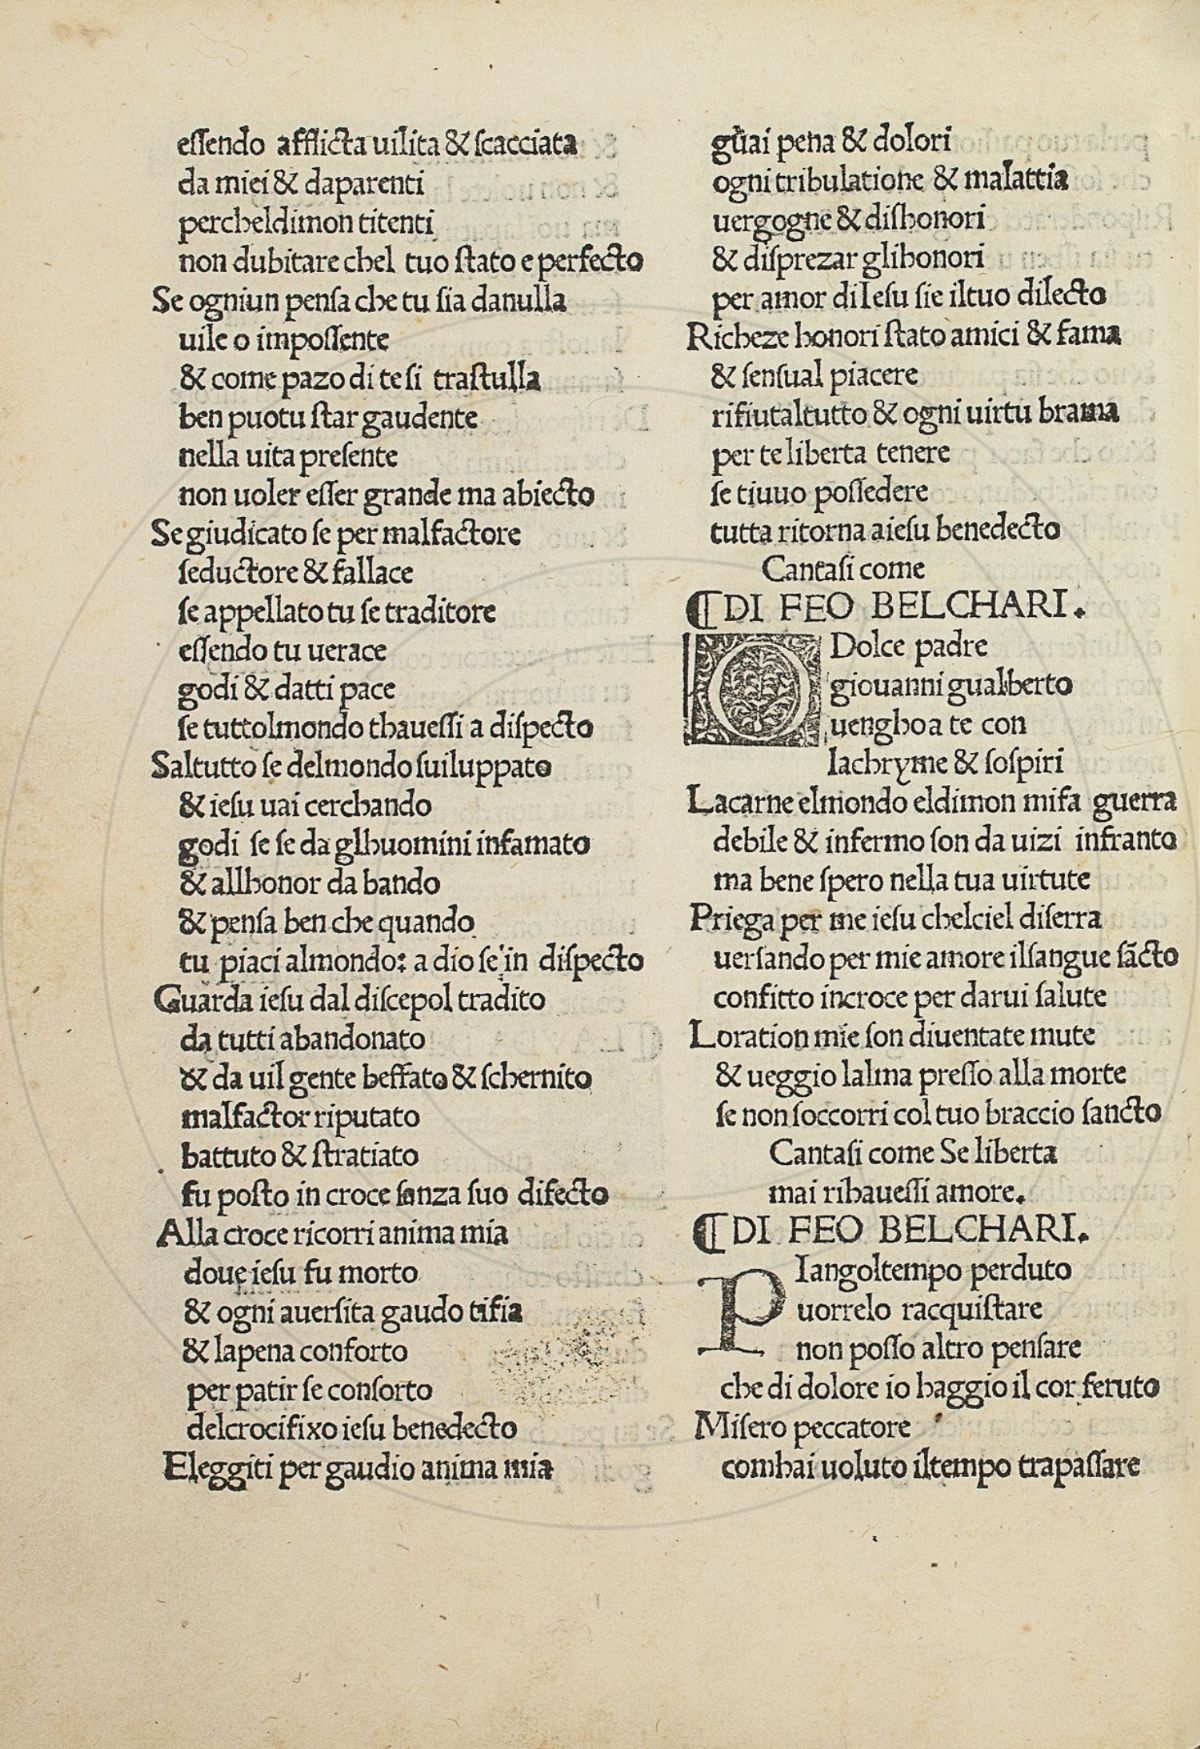 eſſendo afflicta uilita & ſcacciata
da miei & daparenti
percheldimon titenti
non dubitare chel tuo ſtato e perfecto
Se ogniun penſa che tu ſia danulla
uile o impoſſente
& come pazo di te ſi traſtulla
ben puotu ſtar gaudente
nella uita preſente
non uoler eſſer grande ma abiecto
Se giudicato ſe per malfactore
ſeductore & fallace
ſe appellato tu ſe traditore
eſſendo tu uerace
godi & datti pace
ſe tuttolmondo thaueſſi a diſpecto
Saltutto ſe delmondo ſuiluppato
& ieſu uai cerchando
godi ſe ſe da glhuomini infamato
& allhonor da bando
& penſa ben che quando
tu piaci almondo: a dio ſe in diſpecto
Guarda ieſu dal diſcepol tradito
da tutti abandonato
& da uil gente beffato & ſchernito
malfactor riputato
battuto & ſtratiato
fu poſto in croce ſanza ſuo difecto
Alla croce ricorri anima mia
doue ieſu fu morto
& ogni auerſita gaudo tiſia
& lapena conforto
per patir ſe conſorto
delcrocifixo ieſu benedecto
Eleggiti per gaudio anima mia
guai pena & dolori
ogni tribulatione & malattia
uergogne & diſhonori
& diſprezar glihonori
per amor di Ieſu ſie iltuo dilecto
Richeze honori ſtato amici & fama
& ſenſual piacere
rifiutaltutto & ogni uirtu brama
per te liberta tenere
ſe tiuuo poſſedere
tutta ritorna aieſu benedecto
Cantaſi come
¶DI FEO BELCHARI.
O Dolce padre
giouanni gualberto
uengho a te con
lachryme & ſoſpiri
Lacarne elmondo eldimon mifa guerra
debile & infermo ſon da uizi infranto
ma bene ſpero nella tua uirtute
Priega per me ieſu chelciel diſerra
uerſando per mie amore ilſangue ſācto
confitto incroce per darui ſalute
Loration mie ſon diuentate mute
& ueggio lalma preſſo alla morte
ſe non ſoccorri col tuo braccio ſancto
Cantaſi come Se liberta
mai rihaueſſi amore.
¶DI FEO BELCHARI.
PIangoltempo perduto
uorrelo racquiſtare
non poſſo altro penſare
che di dolore io haggio il cor feruto
Miſero peccatore
comhai uoluto iltempo trapaſſare